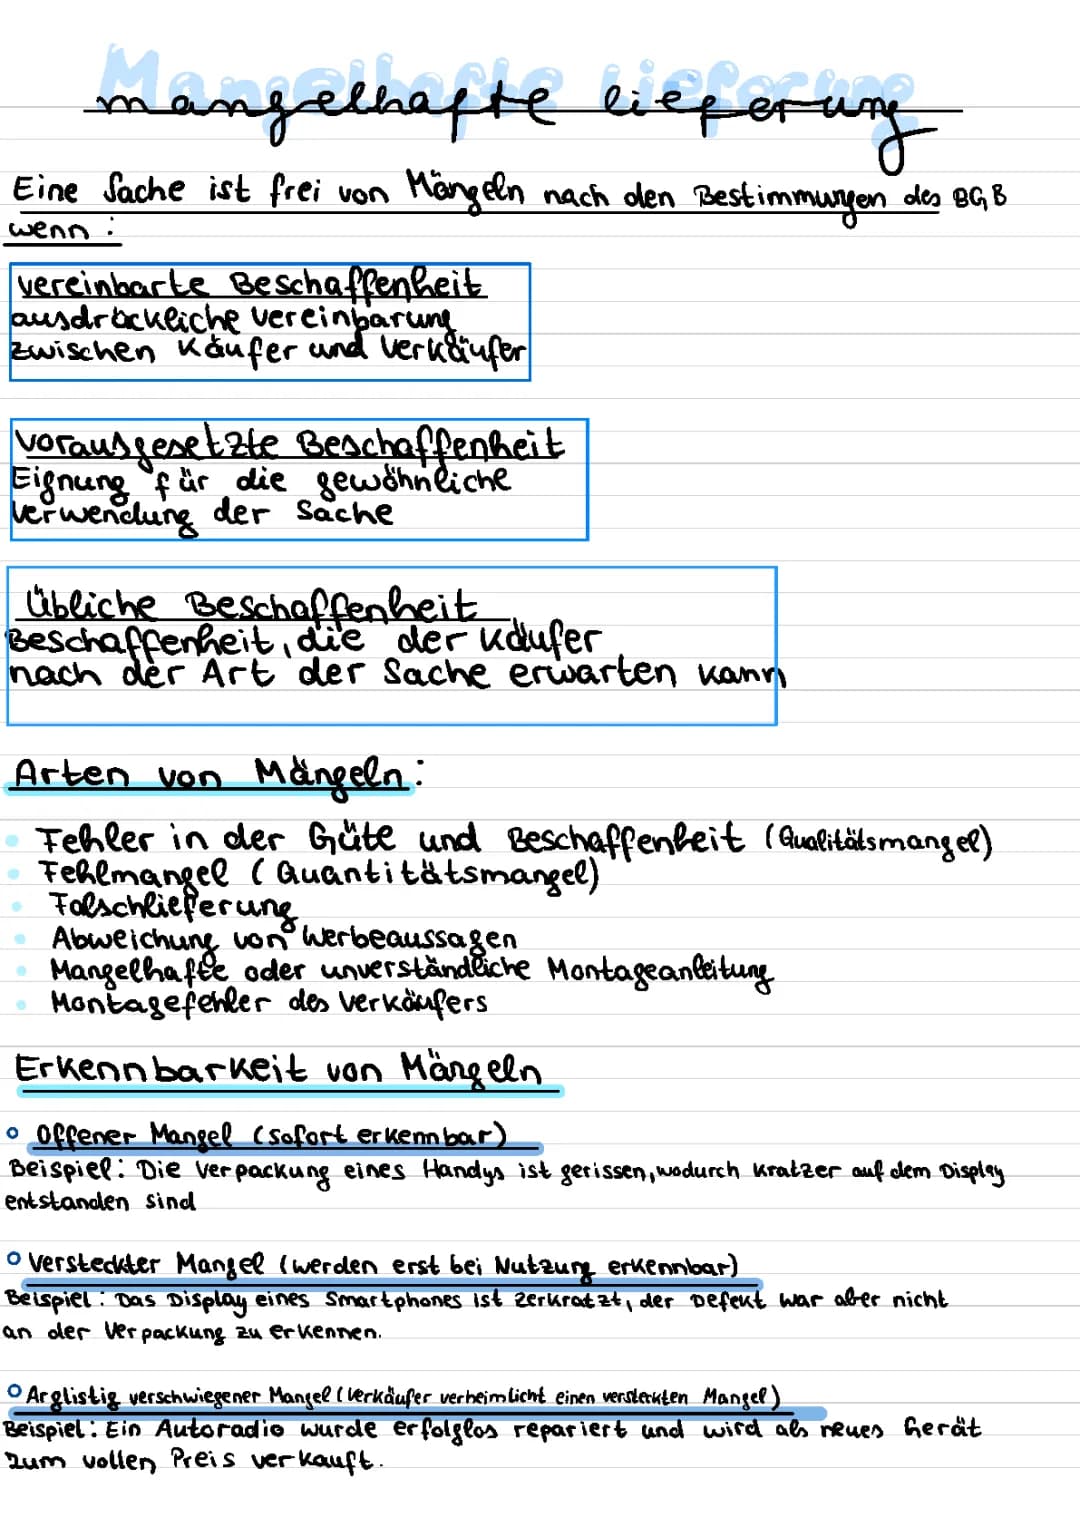 Mangelhafte Lieferung
mangelhafte lieferung
Eine Sache ist frei von Mängeln nach den Bestimmungen des BGB
wenn :
vereinbarte Beschaffenheit
ausdrückliche Vereinbarung
zwischen Käufer und Verkäufer
vorausgesetzte Beschaffenheit
Eignung für die gewöhnliche
Verwendung der Sache
Übliche Beschaffenheit
Beschaffenheit, die der Käufer
nach der Art der Sache erwarten kann
Arten von Mängeln:
• Fehler in der Güte und Beschaffenheit (Qualitätsmangel)
• Fehlmangel (Quantitätsmangel)
• Falschlieferung
• Abweichung von Werbeaussagen
• Mangelhafte oder unverständliche Montageanleitung
• Montagefehler des Verkäufers
Erkennbarkeit von Mängeln
○ Offener Mangel (sofort erkennbar)
Beispiel: Die Verpackung eines Handys ist gerissen, wodurch Kratzer auf dem Display
entstanden sind
○ Versteckter Mangel (werden erst bei Nutzung erkennbar)
Beispiel: Das Display eines Smartphones ist zerkratzt, der Defekt war aber nicht
an der Verpackung zu erkennen.
○ Arglistig verschwiegener Mangel (Verkäufer verheimlicht einen versteckten Mangel)
Beispiel: Ein Autoradio wurde erfolglos repariert und wird als neues Gerät
zum vollen Preis verkauft.